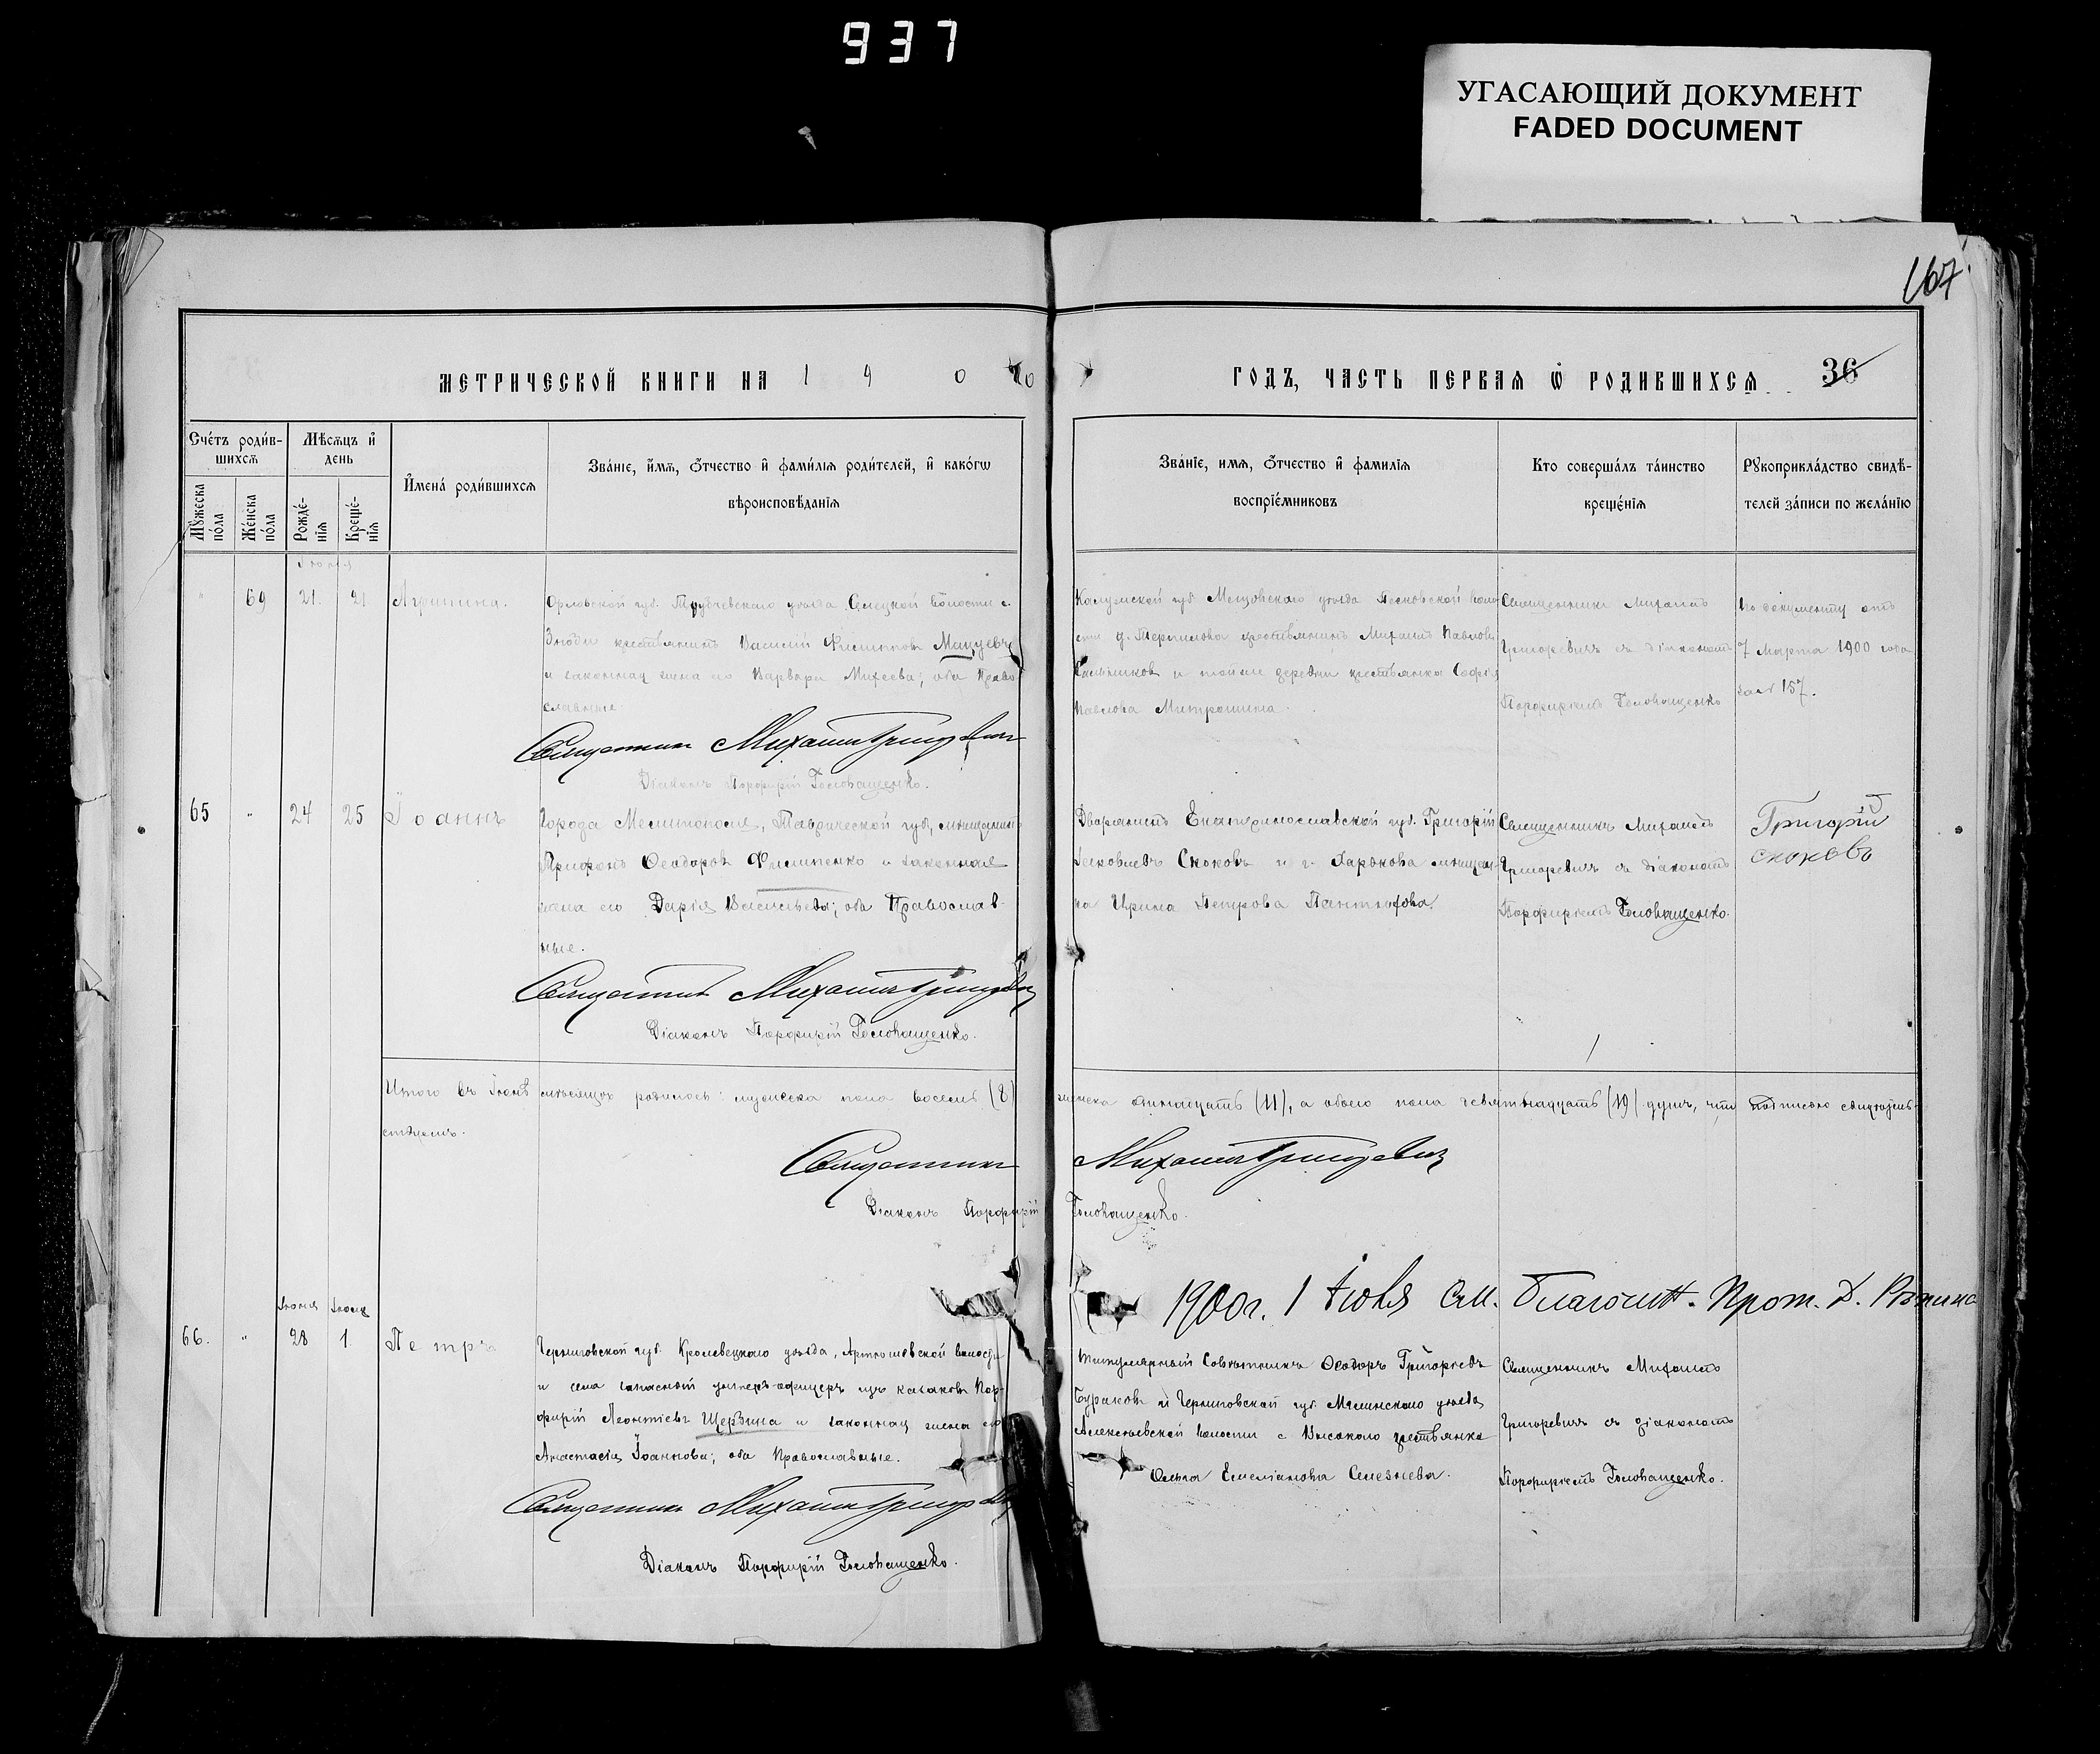 937
УГАСАЮЩИЙ ДОКУМЕНТ
FADED DOCUMENT
167
МЕТРИЧЕСКОЙ КНИГИ НА 1900 ГОДЪ, ЧАСТЬ ПЕРВАЯ Ѿ РОДИВШИХСЯ 36
Счетъ родив-
шихся
Мужеска пола
Женска пола
Мѣсяцъ и день
Рожде-
нія
Креще-
нія
Имена родившихся
Званіе, имя, отчество и фамилія родителей, и какогѡ
вѣроисповѣданія
Званіе, имя, отчество и фамилія
воспріемниковъ
Кто совершалъ таинство
крещенія
Рукоприкладство свидѣ-
телей записи по желанію
Іюня
" 69 21. 21 Агрипина.
Орловской губ. Трубчевскаго уѣзда, Селецкой волости с.
крестьянинъ Василій Филипповъ
и законная жена его Варвара Михеева; оба Право-
славные.
Священникъ Михаилъ Григоревичъ
Діаконъ Порфирій Головащенко.
Калужской губ. Мещовскаго уѣзда
крестьянинъ Михаилъ Павловъ
и той же деревни крестьянка Софія
Павлова Митрошина.
Священникъ Михаилъ
Григоревичъ съ діакономъ
Порфиріемъ Головащенко
По документу отъ
7 Марта 1900 года
за № 157.
65 " 24 25 Іоаннъ
Города Мелитополя, Таврической губ., мѣщанинъ
Трифонъ Ѳеодоровъ Филипенко и законная
жена его Дарія Васильева; оба Православ-
ные.
Священникъ Михаилъ Григоревичъ
Діаконъ Порфирій Головащенко.
Дворянинъ Екатеринославской губ. Григорій
Яковлевъ Скоковъ и г. Харькова мѣщан-
ка Ирина Петрова Пантюфова.
Священникъ Михаилъ
Григоревичъ съ діакономъ
Порфиріемъ Головащенко.
Григорій
Скоковъ
Итого въ Іюнѣ мѣсяцѣ родилось: мужеска пола восемь (8) женска одинадцать (11), а обоего пола девятнадцать (19) душъ, что подписью свидѣтель-
ствуемъ.
Священникъ Михаилъ Григоревичъ
Діаконъ Порфирій Головащенко.
1900г. 1 Іюля См. Благочин. Прот. Д.
Іюня Іюля
66. " 28 1 Петръ
Черниговской губ. Кролевецкаго уѣзда, Артюшевской волости
и села запасный унтеръ-офицеръ изъ казаковъ Пор-
фирій Леонтіевъ Щербина и законная жена его
Анастасія Іоаннова; оба Православные.
Священникъ Михаилъ Григоревичъ
Діаконъ Порфирій Головащенко.
Титулярный Совѣтникъ Ѳеодоръ Григорьевъ
Бураковъ и Черниговской губ. Мглинскаго уѣзда,
Алексѣевской волости с. Высокаго крестьянка
Ольга Емеліанова Селезнева.
Священникъ Михаилъ
Григоревичъ съ діакономъ
Порфиріемъ Головащенко.